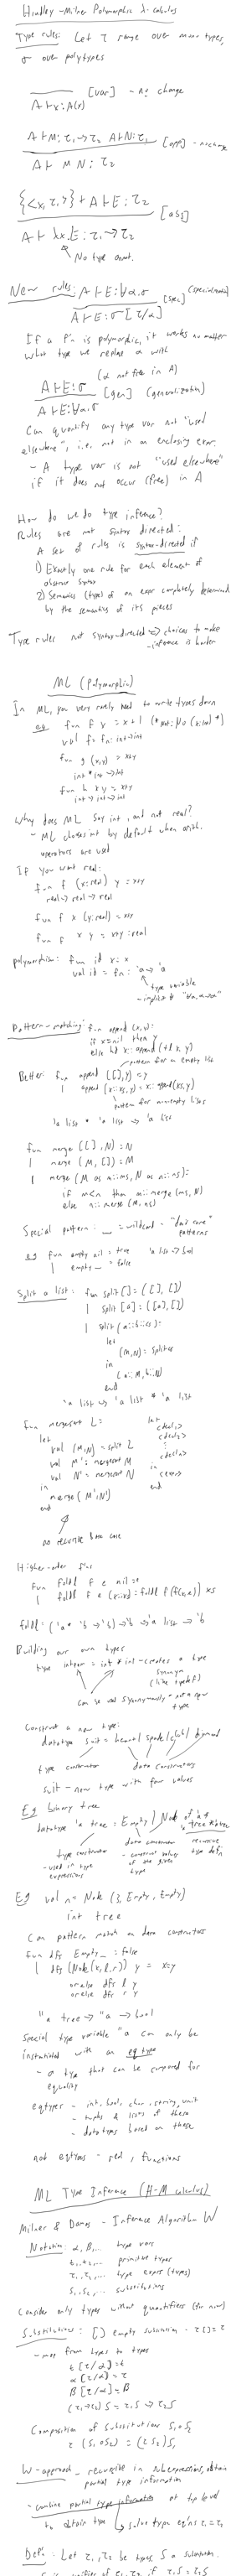 Hindley-Milner Polymorphic λ-calculus
Type rules: Let τ range over mono types,
σ over polytypes
A ⊢ x: A(x) [var] - no change
A ⊢ M: τ₁ → τ₂ A ⊢ N: τ₁
A ⊢ M N: τ₂ [app] - no change
{<x, τ₁>} + A ⊢ E: τ₂
A ⊢ λx.E: τ₁ → τ₂ [abs]
No type annot.
New rules: A ⊢ E: ∀α.σ
A ⊢ E: σ[τ/α] [spec] (specialization)
If a f'n is polymorphic, it works no matter
what type we replace α with
A ⊢ E: σ (α not free in A)
A ⊢ E: ∀α.σ [gen] (generalization)
Can quantify any type var not "used
elsewhere", i.e. not in an enclosing expr.
- A type var is not "used elsewhere"
if it does not occur (free) in A
How do we do type inference?
Rules are not syntax directed:
A set of rules is syntax-directed if
1) Exactly one rule for each element of
abstract syntax
2) Semantics (type) of an expr completely determined
by the semantics of its pieces
Type rules not syntax-directed => choices to make
- inference is harder
ML (Polymorphic)
In ML, you very rarely need to write types down
eg. fun f x = x + 1
val f = fn: int → int
fun g (x,y) = x+y
int * int → int
fun h x y = x+y
int → int → int
Why does ML say int, and not real?
- ML chooses int by default when arith.
operators are used
If you want real:
fun f (x:real) y = x+y
real → real → real
fun f x (y:real) = x+y
fun f x y = x+y:real
polymorphism: fun id x = x
val id = fn: 'a → 'a
type variable
- implicit
Pattern-matching: fun append (x,y) =
if x=nil then y
else hd x :: append (tl x, y)
pattern for an empty list
Better: fun append ([],y) = y
| append (x::xs,y) = x::append(xs,y)
pattern for nonempty lists
'a list * 'a list → 'a list
fun merge ([],N) = N
| merge (M,[]) = M
| merge (M as m::ms, N as n::ns) =
if m<n then m::merge(ms,N)
else n::merge(M,ns)
Special pattern: _ = wildcard - "don't care"
patterns
eg fun empty nil = true 'a list → bool
| empty _ = false
Split a list: fun split [] = ([],[])
| split [a] = ([a],[])
| split (a::b::cs) =
let
(M,N) = split cs
in
(a::M, b::N)
end
'a list → 'a list * 'a list
fun mergesort L =
let
val (M,N) = split L
val M' = mergesort M
val N' = mergesort N
in
merge(M',N')
end
let
<decl₁>
<decl₂>
⋮
<declₙ>
in
<expr>
end
no recursive base case
Higher-order f'ns
fun foldl f e nil = e
| foldl f e (x::xs) = foldl f (f(x,e)) xs
foldl: ('a * 'b → 'b) → 'b → 'a list → 'b
Building our own types
type intpair = int * int - creates a type
synonym
(like typedef)
can be used synonymously - not a new
type
Construct a new type:
datatype suit = heart | spade | club | diamond
type constructor data constructors
suit - new type with four values
Eg binary tree
datatype 'a tree = Empty | Node of 'a * 'a tree * 'a tree
type constructor
- used in type
expressions
data constructor
- construct values
of the given
type
recursive
type def'n
Eg val n = Node (3, Empty, Empty)
int tree
Can pattern match on data constructors
fun dfs Empty _ = false
| dfs (Node(x,l,r)) y = x=y
orelse dfs l y
orelse dfs r y
''a tree → ''a → bool
Special type variable ''a can only be
instantiated with an eq type
- a type that can be compared for
equality
eqtypes - int, bool, char, string, unit
- tuples & lists of these
- datatypes based on these
not eqtypes - real, functions
ML Type Inference (H-M calculus)
Milner & Damas - Inference Algorithm W
Notation: α, β, ... type vars
t₁, t₂, ... primitive types
τ₁, τ₂, ... type exprs (types)
S₁, S₂, ... substitutions
Consider only types without quantifiers (for now)
Substitutions: [] empty substitution - τ[] = τ
- map from types to types
t[τ/α] = t
α[τ/α] = τ
β[τ/α] = β
(τ₁→τ₂)S = τ₁S → τ₂S
Composition of substitutions S₁∘S₂
τ(S₁∘S₂) = (τS₂)S₁
W-approach - recursive in subexpressions, obtain
partial type information
- combine partial type information at top level
to obtain type
solve type eq'ns τ₁ = τ₂
Def'n: Let τ₁, τ₂ be types, S a substitution.
S is unifier of τ₁, τ₂ if τ₁S = τ₂S